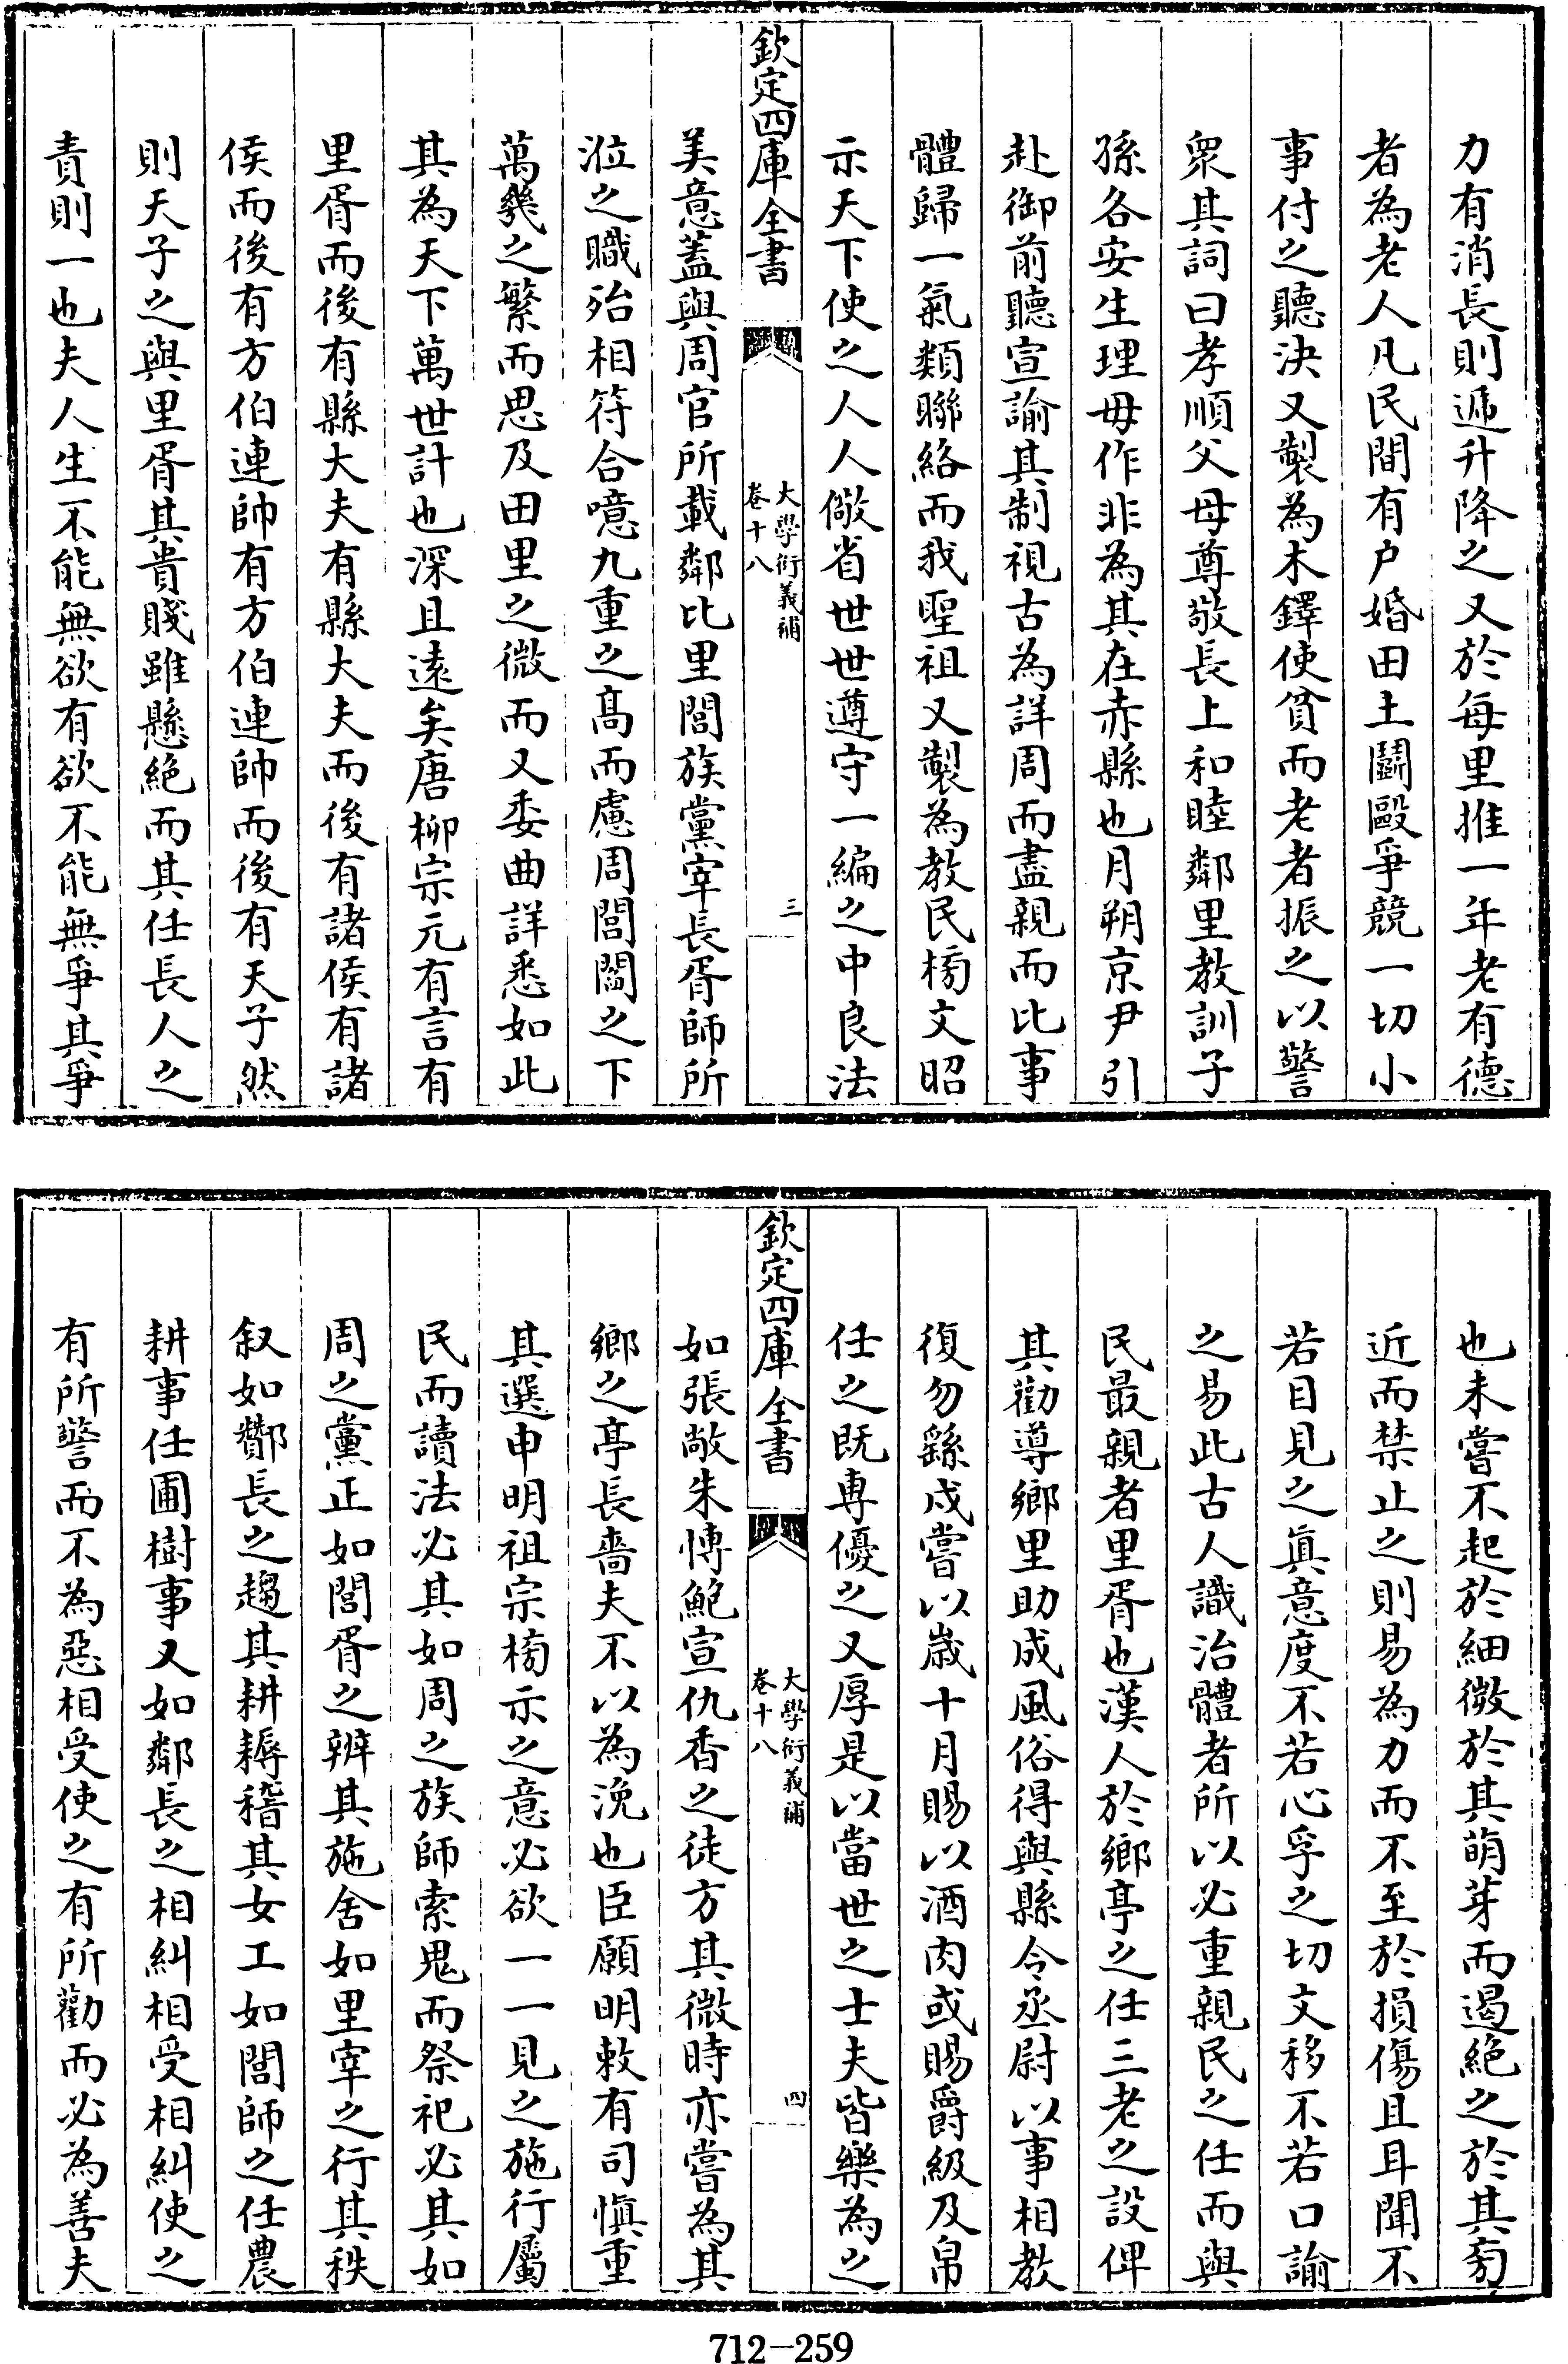 力有消長則遞升降之又於每里推一年老有德
者為老人凡民間有户婚田土鬬毆爭競一切小
事付之聽決又製為木鐸使貧而老者振之以警
衆其詞曰孝順父母尊敬長上和睦鄰里教訓子
孫各安生理毋作非為其在赤縣也月朔京尹引
赴御前聽宣諭其制視古為詳周而盡親而比事
體歸一氣類聯絡而我聖祖又製為教民榜文昭
示天下使之人人儆省世世遵守一編之中良法
欽定四庫全書
大學衍義補
卷十八
三
美意蓋與周官所載鄰比里閭族黨宰長胥師所
涖之職殆相符合噫九重之髙而慮周閭閻之下
萬幾之繁而思及田里之微而又委曲詳悉如此
其為天下萬世計也深且逺矣唐柳宗元有言有
里胥而後有縣大夫有縣大夫而後有諸侯有諸
侯而後有方伯連帥有方伯連帥而後有天子然
則天子之與里胥其貴賤雖懸絶而其任長人之
責則一也夫人生不能無欲有欲不能無爭其爭
也未嘗不起於細微於其萌芽而遏絶之於其㓜
近而禁止之則易為力而不至於損傷且耳聞不
若目見之真意度不若心孚之切文移不若口諭
之易此古人識治體者所以必重親民之任而與
民最親者里胥也漢人於鄉亭之任三老之設俾
其勸導鄉里助成風俗得與縣令丞尉以事相教
復勿繇戍嘗以歳十月賜以酒肉或賜爵級及帛
任之既專優之又厚是以當世之士夫皆樂為之
欽定四庫全書
大學衍義補
卷十八
四
如張敞朱博鮑宣仇香之徒方其微時亦嘗為其
鄉之亭長嗇夫不以為浼也臣願明敕有司慎重
其選申明祖宗榜示之意必欲一一見之施行屬
民而讀法必其如周之族師索鬼而祭祀必其如
周之黨正如閭胥之辨其施舍如里宰之行其秩
叙如酇長之趨其耕耨稽其女工如閭師之任農
耕事任圃樹事又如鄰長之相糾相受相糾使之
有所警而不為惡相受使之有所勸而必為善夫
712-259